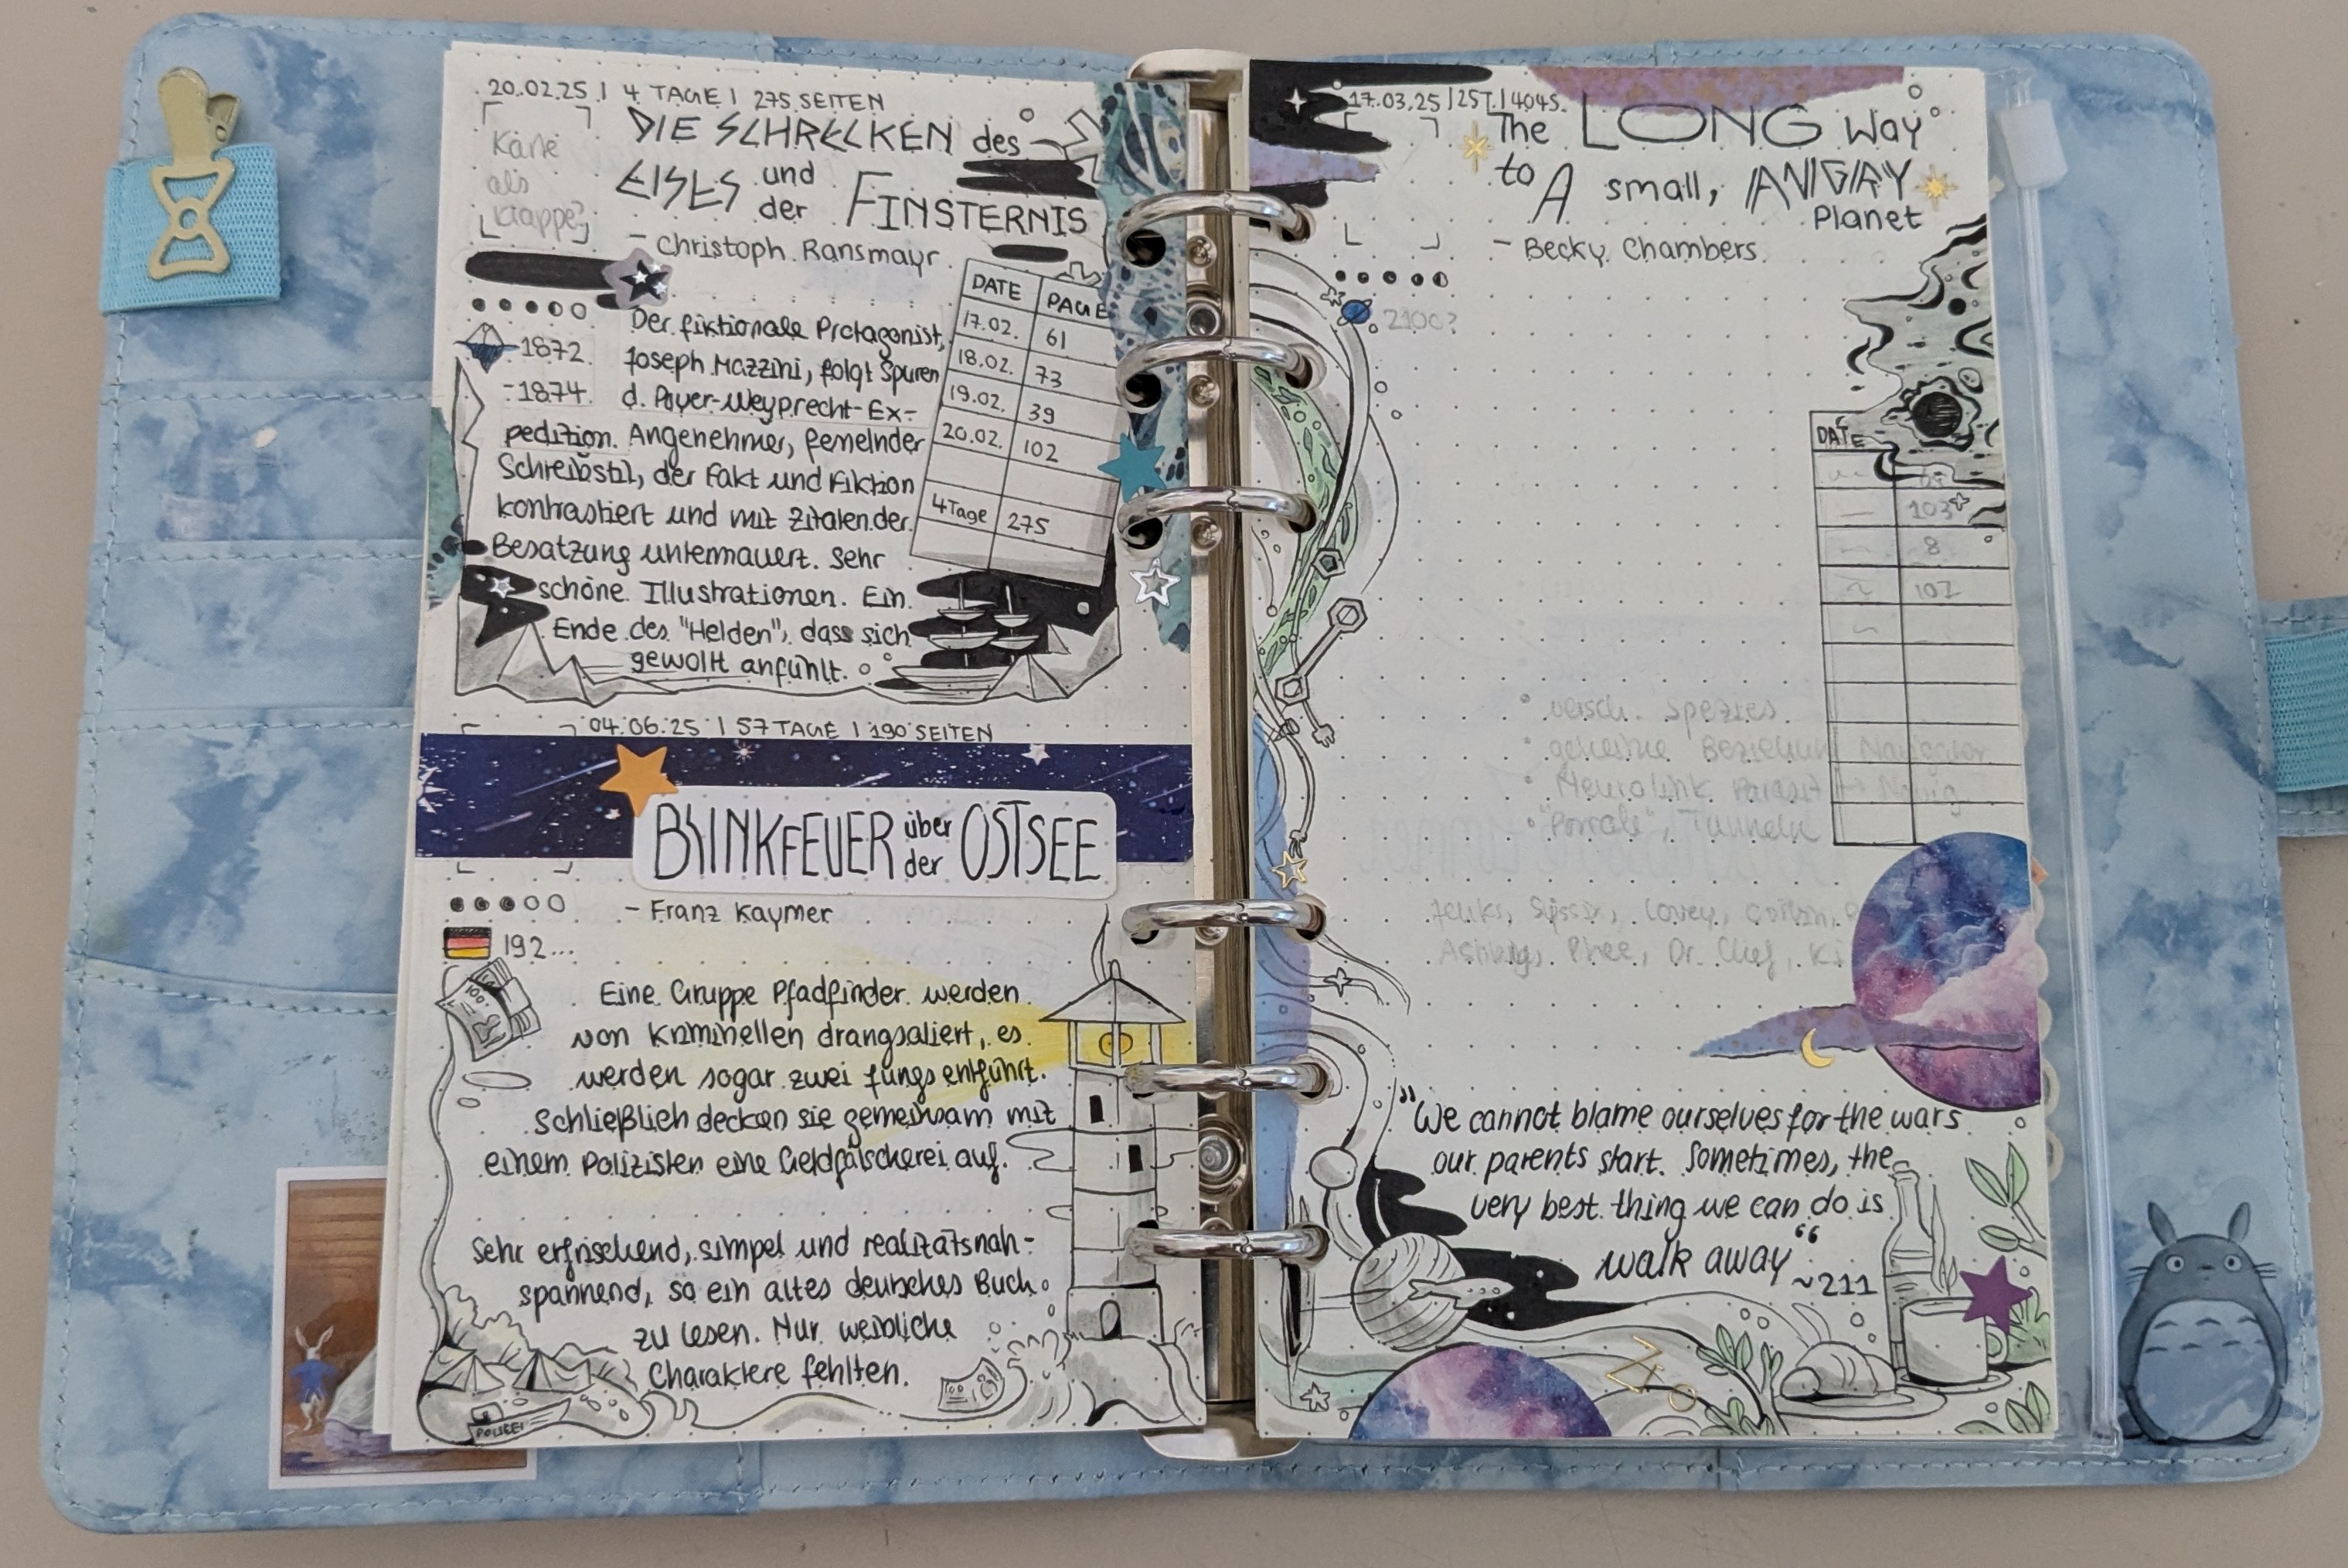 20.02.25 | 4 TAGE | 275 SEITEN
Karte
als
Klappe?
DIE SCHRECKEN des
EISES und
der FINSTERNIS
- Christoph Ransmayr
DATE PAGE
17.02. 61
18.02. 73
19.02. 39
20.02. 102
4 Tage 275
1872
-1874
Der fiktionale Protagonist,
Joseph Mazzini, folgt Spuren
d. Payer-Weyprecht-Ex-
pedition. Angenehmer, femelnder
Schreibstil, der Fakt und Fiktion
kontrastiert und mit Zitaten der
Besatzung untermauert. Sehr
schöne Illustrationen. Ein
Ende des "Helden", dass sich
gewollt anfühlt.
04.06.25 | 57 TAGE | 190 SEITEN
BLINKFEUER über
der OSTSEE
- Franz Kaymer
192...
100
Eine Gruppe Pfadfinder werden
von Kriminellen drangsaliert, es
werden sogar zwei Jungs entführt.
Schließlich decken sie gemeinsam mit
einem Polizisten eine Geldfälscherei auf.
Sehr erfrischend, simpel und realitätsnah-
spannend, so ein altes deutsches Buch
zu lesen. Nur weibliche
Charaktere fehlten.
POLIZEI
17.03.25 | 25T. | 404S.
The LONG Way
to A small, ANGRY
Planet
- Becky Chambers
2100?
DATE
103
8
102
versch. Spezies
geheime Beziehung Navigator
Neurolink Parasit → Navig
"Portale", Tunneln
Jenks, Sissix, Lovey, Corbin,
Ashby, Phee, Dr. Chef, Ki
"We cannot blame ourselves for the wars
our parents start. Sometimes, the
very best thing we can do is
walk away"
~211